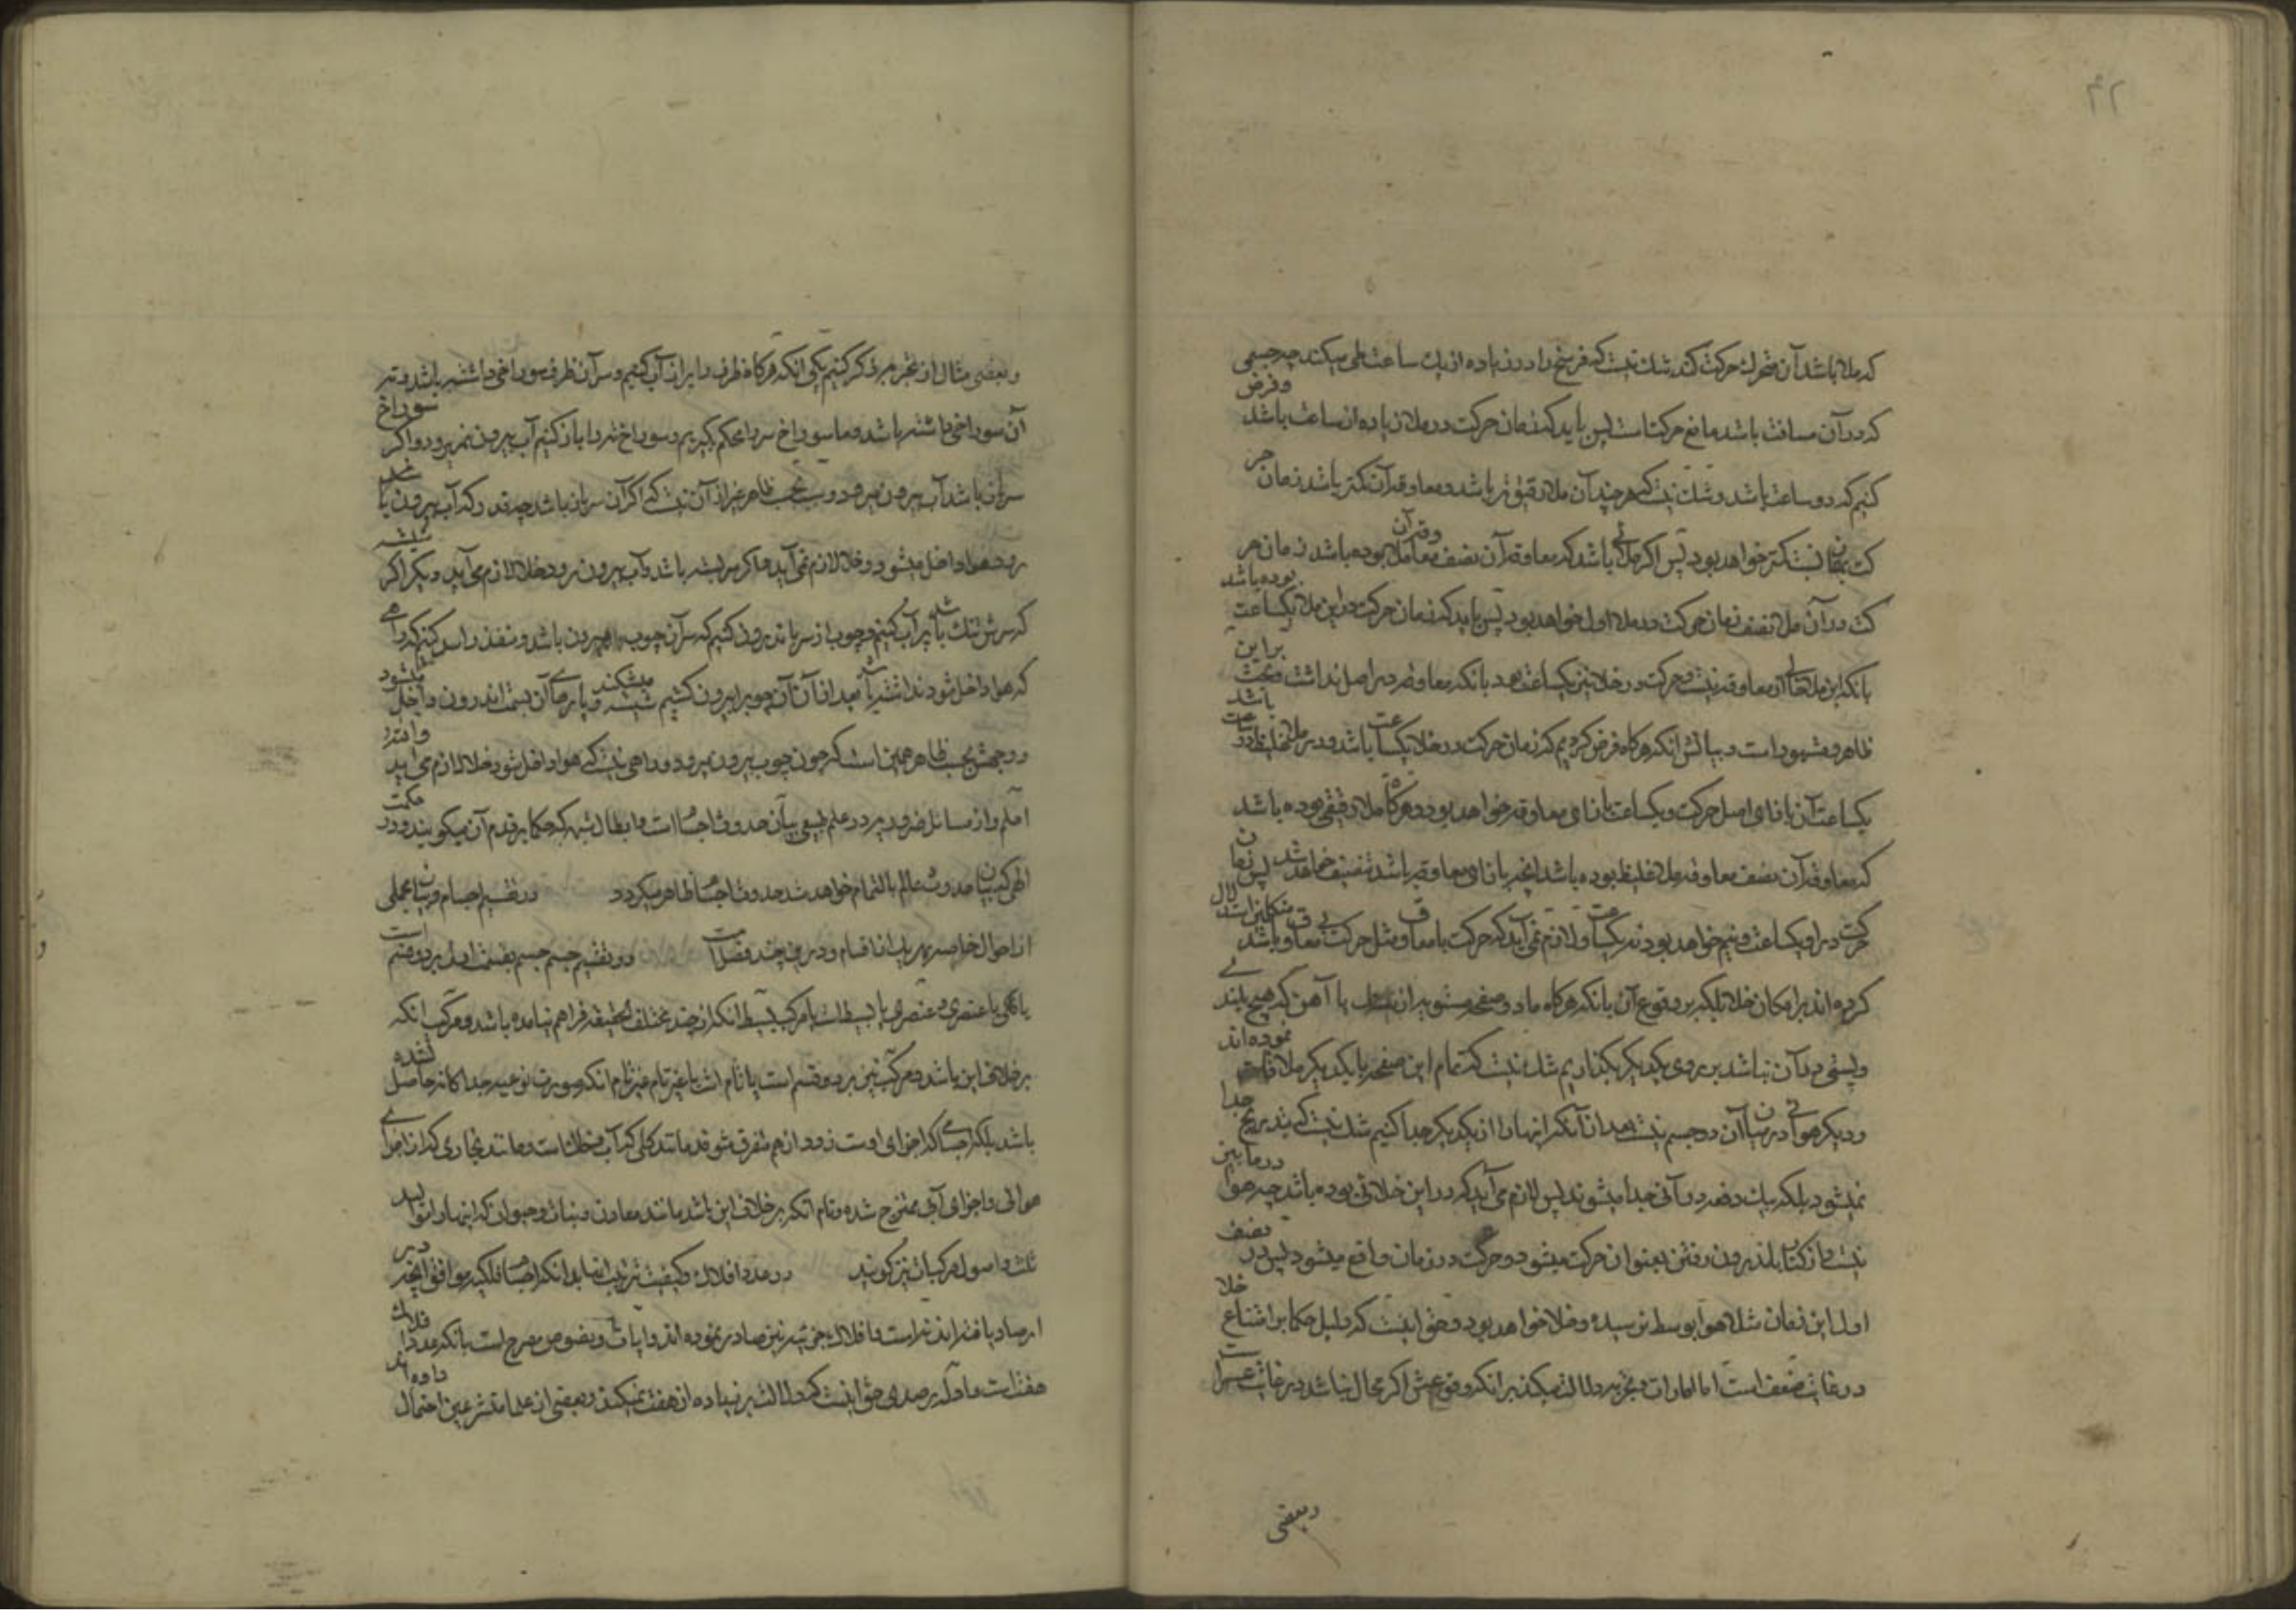 ۴۲
که ملا باشد آن متحرک حرکت کند شک نیست که فرسخ را در زیاده از یک ساعت طی میکند چه جسمی
که در آن مسافت باشد مانع حرکتست پس باید که زمان حرکت در ملا زیاده از ساعت باشد وفرض
کنیم که دو ساعت باشد و شک نیست که هر چند آن ملا رقیق‌تر باشد و معاوقه آن کمتر باشد زمان حر
کت نیز کمتر خواهد بود پس اگر ملائی باشد که معاوقه آن نصف معاوقه آن ملا بوده باشد زمان حر
کت در آن ملا نصف زمان حرکت در ملا اول خواهد بود پس باید که زمان حرکت در این ملا یکساعت بوده باشد
با آنکه این ملا خالی از معاوقه نیست و حرکت در خلا نیز یکساعت بود با آنکه معاوقه در اصل نداشت و بحث براین
ظاهر و مشهود است و بیانش آنکه هرگاه فرض کردیم که زمان حرکت در خلا یکساعت باشد و در ملا غلیظ دو ساعت باشد
یکساعت آن بازای اصل حرکت و یکساعت بازای معاوقه خواهد بود و هرگاه ملا رقیقی بوده باشد
که معاوقه آن نصف معاوقه ملا غلیظ بوده باشد آنچه بازای معاوقه باشد نصف خواهد شد پس زمان
حرکت در او یکساعت و نیم خواهد بود نه یکساعت و لازم نمی‌آید که حرکت با معاوق مثل حرکت بی معاوق باشد متکلمین استدلال
کرده‌اند بر امکان خلا بلکه بر وقوع آن بانکه هرگاه ما دو صفحه مستوی از یا آهن که هیچ بلندی
و پستی در آن نباشد بر روی یکدیگر بگذاریم شک نیست که تمام این صفحه با یکدیگر ملاقات نموده‌اند
و دیگر هوائی در میان آن دو جسم نیست بعد از آنکه اینها را از یکدیگر جدا کنیم شک نیست که بتدریج جدا
نمیشود بلکه بیک دفعه در آنی جدا میشوند پس لازم می‌آید که در این خلائی بوده باشد چه هوا در مابین
نیست و از کنار بلند رون رفتن بعنوان حرکت میشود و حرکت در زمان واقع میشود پس در نصف
اول این زمان مثلا هوا بوسط نرسیده و خلا خواهد بود و حق اینست که دلیل حکما بر امتناع خلا
در غایت ضعف است اما امارات و تجربه دلالت میکند بر آنکه وقوعش اگر محال نباشد در غایت عسرا
وبعضی
وبعضی مثال از تجربه ذکر کنیم یکی انکه هرگاه ظرف را پر از آب کنیم و سر آن ظرف سوراخی داشته باشد و ته
آن سوراخی داشته باشد و ما سوراخ سر را محکم بگیریم و سوراخ ته را باز کنیم آب بیرون نمیرود و اگر سوراخ
سر باز باشد آب بیرون میرود و سبب بحسب ظاهر غیر از آن نیست که اگر آن سر باز باشد چه قدر که آب بیرون
رود هوا داخل میشود و خلا لازم نمی‌آید و اگر سر بسته باشد و آب بیرون رود خلا لازم می‌آید دیگر اگر شیشه
که سرش تنگ باشد پر آب کنیم و چوب از سر با ندرون کنیم که سر آن چوب بیرون باشد و منفذ را سد کند که راهی
که هوا داخل شود نداشته باشد بعد از آن آن چوب را بیرون کشیم شیشه میشکند و پارهای آن بسمت اندرون داخل میشود
و وجهش بحسب ظاهر همین است که چون چوب بیرون میرود و راهی نیست که هوا داخل شود خلا لازم می‌آید
اعلم و از مسائل ضروریه در علم طبیعی بیان حدوث اجسام است و ابطال شبه که حکما بر قدم آن میگویند و در حکمت
الهی که بیان حدوث عالم بالتمام خواهد شد حدوث اجسام ظاهر میگردد در تقسیم اجسام و بیان مجملی
از احوال خاصه بهر یک از اقسام و در وی چند فصل است در تقسیم جسم جسم بقسمت اول بر دو قسم است
یا فلکی یا عنصری و عنصری یا بسیط است یا مرکب بسیط انکه از چند مختلف الحقیقه فراهم نیامده باشد و مرکب انکه
بر خلاف این باشد و مرکب نیز بر دو قسم است یا تام است یا غیر تام غیر تام انکه صورت نوعیه جداگانه حاصل نشده
باشد بلکه اجسامی که اجزای اوست زود از هم متفرق شود مانند گلی که آب و خاکست و مانند بخاری که از اجزای
هوائی و اجزای آبی ممتزج شده و تام انکه بر خلاف این باشد مانند معادن و نبات و حیوان که اینها را موالید
ثلث و اصول مرکبات نیز گویند در عدد افلاک و کیفیت ترتیب بدانکه اجسام فلکیه موافق آنچه در
ارصاد یافته‌اند نه است و افلاک جزئیه نیز صادر نموده‌اند و ایات و نصوص مصرح است بانکه عدد افلاک
هفت است و ادله رصدی حق اینست که دلالت بر زیاده از هفت نمیکند و بعضی از علما متشرعین احتمال داده‌اند